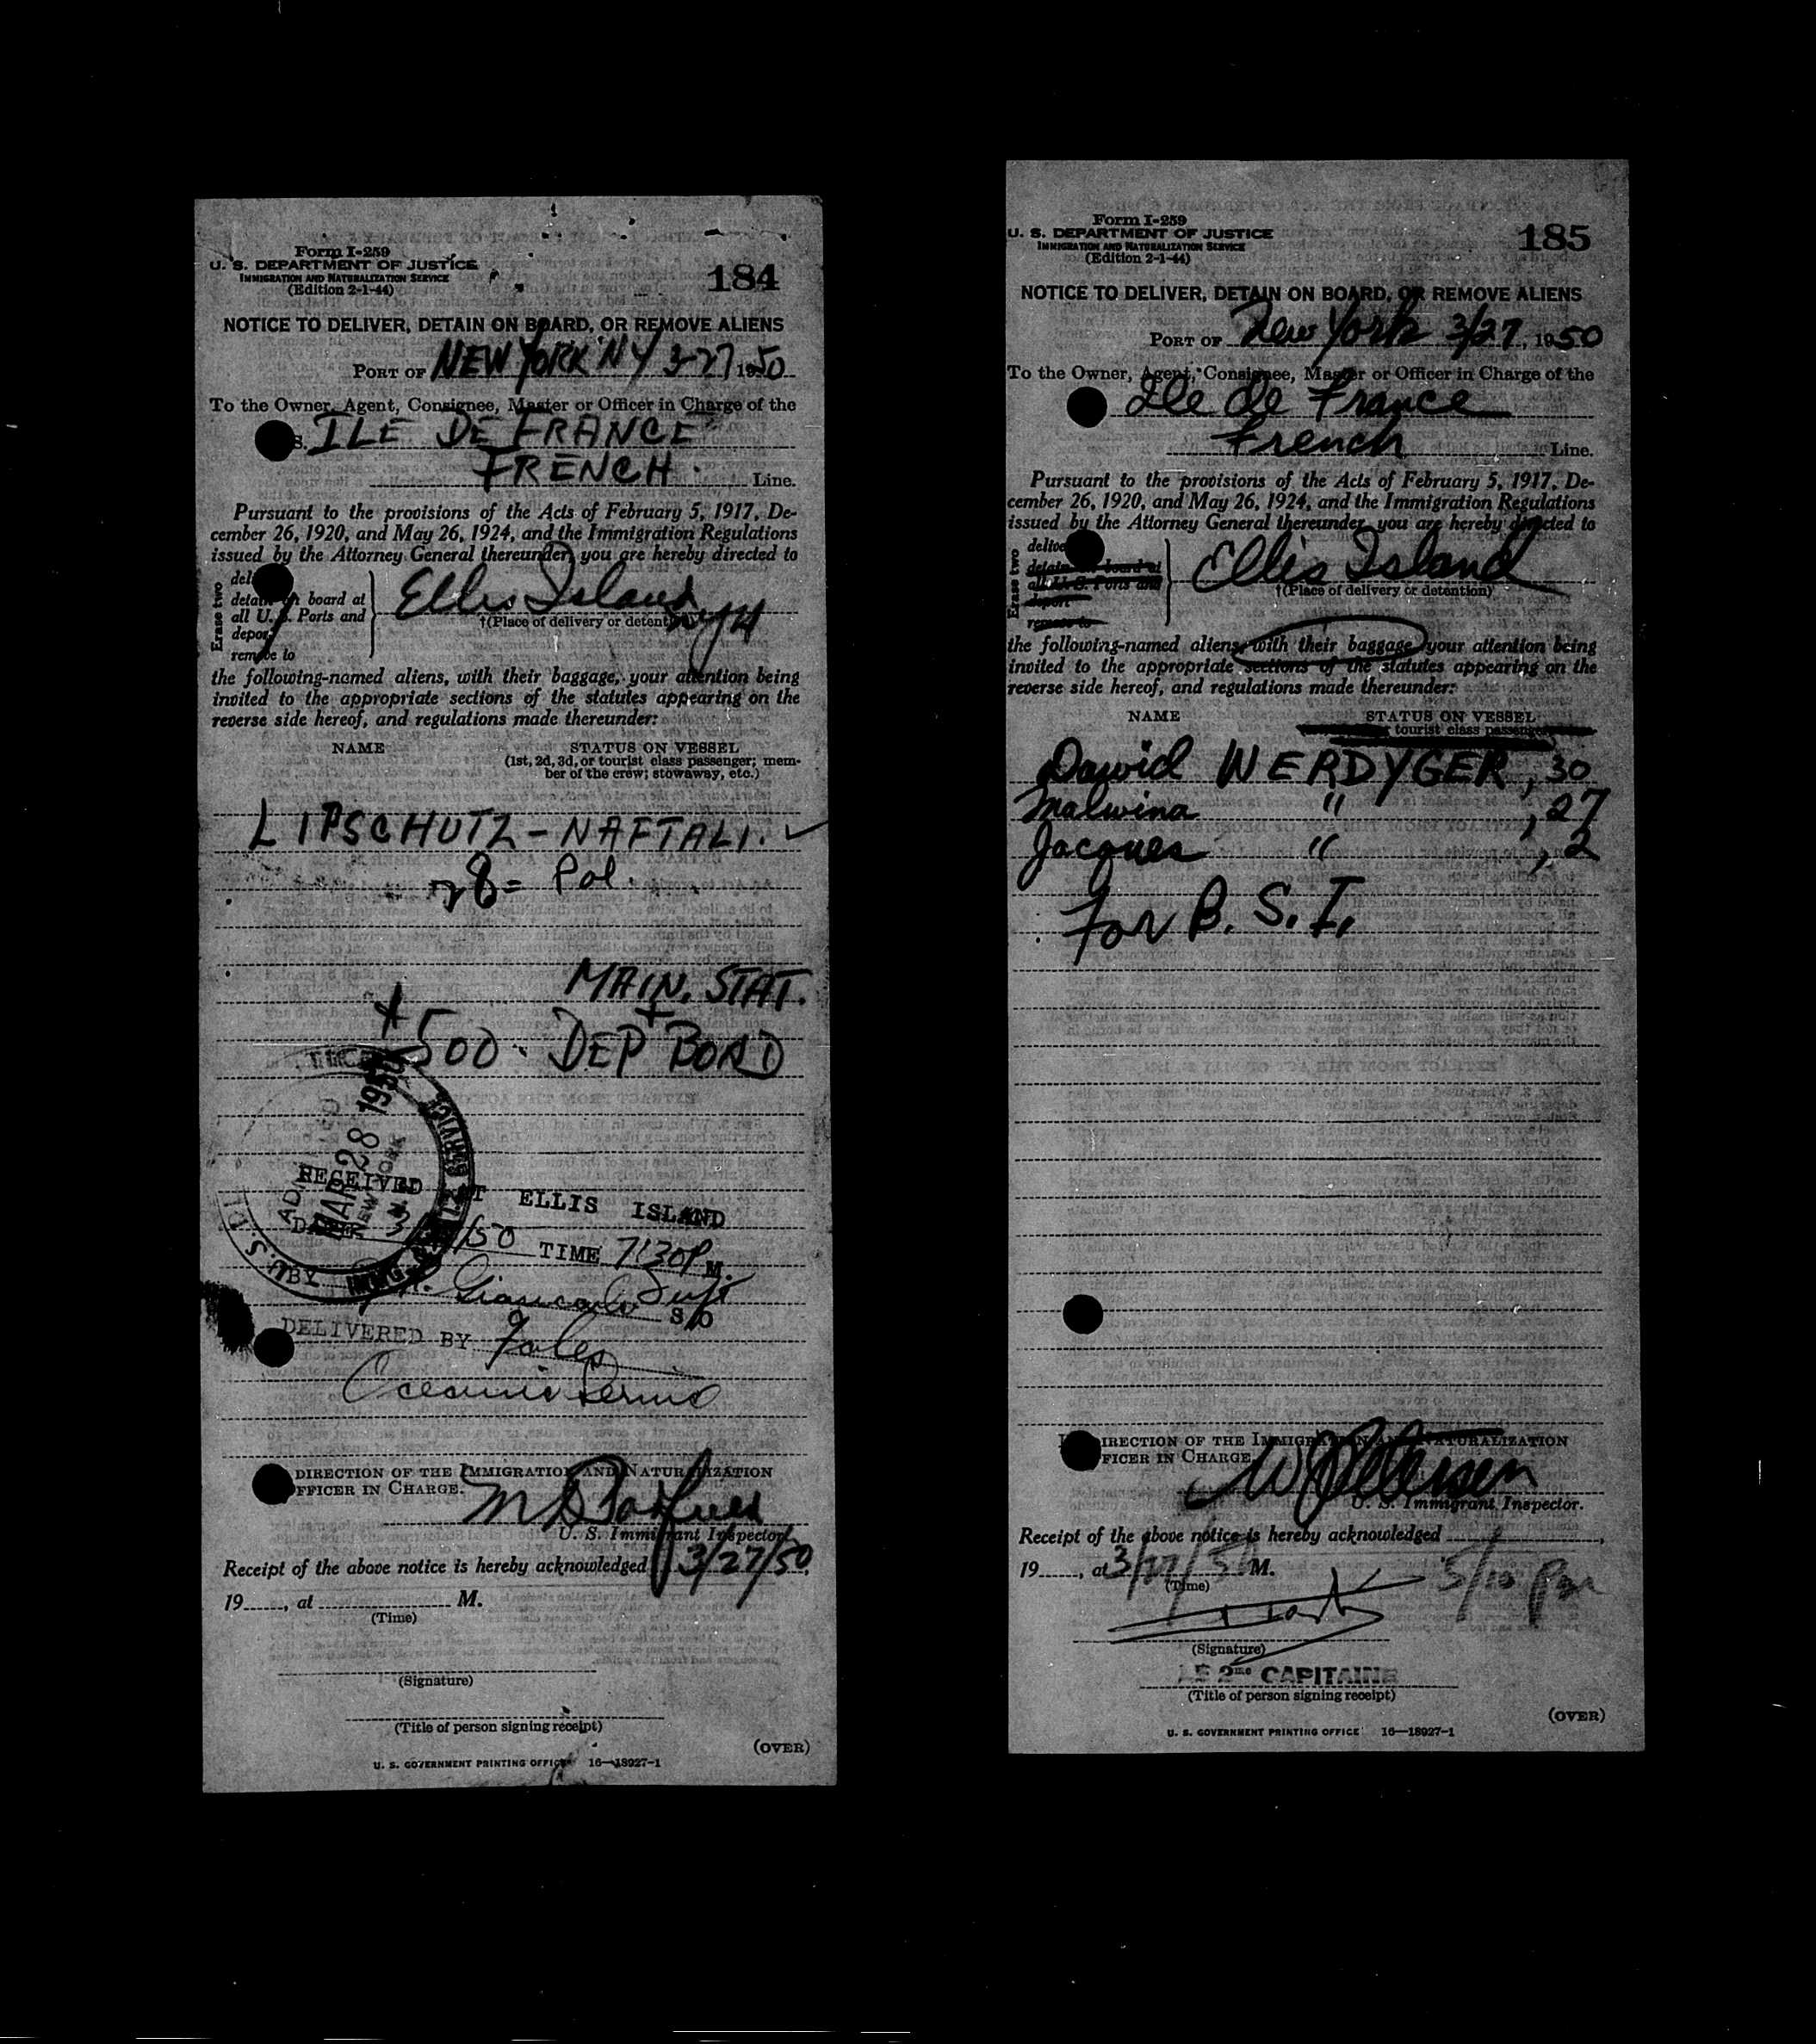 Form I-259
U. S. DEPARTMENT OF JUSTICE
IMMIGRATION AND NATURALIZATION SERVICE
(Edition 2-1-44)
184
NOTICE TO DELIVER, DETAIN ON BOARD, OR REMOVE ALIENS
PORT OF NEW YORK NY 3-27 1950
To the Owner, Agent, Consignee, Master or Officer in Charge of the
S. ILE DE FRANCE
FRENCH Line.
Pursuant to the provisions of the Acts of February 5, 1917, De-
cember 26, 1920, and May 26, 1924, and the Immigration Regulations
issued by the Attorney General thereunder, you are hereby directed to
Erase two
detain on board at
all U. S. Ports and
deport
remove to
Ellis Island
†(Place of delivery or detention)
the following-named aliens, with their baggage, your attention being
invited to the appropriate sections of the statutes appearing on the
reverse side hereof, and regulations made thereunder:
NAME STATUS ON VESSEL
(1st, 2d, 3d, or tourist class passenger; mem-
ber of the crew; stowaway, etc.)
LIPSCHUTZ - NAFTALI. ✓
28 = Pol.
MAIN. STAT.
+
$500. DEP BOND
MAR 28 1950
RECEIVED AT ELLIS ISLAND
DATE 3/ /50 TIME 7:30 P M.
S/O
DELIVERED BY
DIRECTION OF THE IMMIGRATION AND NATURALIZATION
OFFICER IN CHARGE.
U. S. Immigrant Inspector.
Receipt of the above notice is hereby acknowledged 3/27/50,
19____, at ____ M.
(Time)
(Signature)
(Title of person signing receipt)
(OVER)
U. S. GOVERNMENT PRINTING OFFICE 16—18927-1
Form I-259
U. S. DEPARTMENT OF JUSTICE
IMMIGRATION AND NATURALIZATION SERVICE
(Edition 2-1-44)
185
NOTICE TO DELIVER, DETAIN ON BOARD, OR REMOVE ALIENS
PORT OF New York 3/27, 1950
To the Owner, Agent, Consignee, Master or Officer in Charge of the
Ile de France
French Line.
Pursuant to the provisions of the Acts of February 5, 1917, De-
cember 26, 1920, and May 26, 1924, and the Immigration Regulations
issued by the Attorney General thereunder, you are hereby directed to
Erase two
deliver
detain on board at
all U. S. Ports and
deport
remove to
Ellis Island
†(Place of delivery or detention)
the following-named aliens, with their baggage, your attention being
invited to the appropriate sections of the statutes appearing on the
reverse side hereof, and regulations made thereunder:
NAME STATUS ON VESSEL
tourist class passenger
Dawid WERDYGER, 30
Malwina " , 27
Jacques " , 2
For B. S. I.
DIRECTION OF THE IMMIGRATION AND NATURALIZATION
OFFICER IN CHARGE.
W Petersen
U. S. Immigrant Inspector.
Receipt of the above notice is hereby acknowledged ____,
19____, at 3/27/50 M. 5/10 Pm
(Time)
(Signature)
LE 2me CAPITAINE
(Title of person signing receipt)
(OVER)
U. S. GOVERNMENT PRINTING OFFICE 16—18927-1